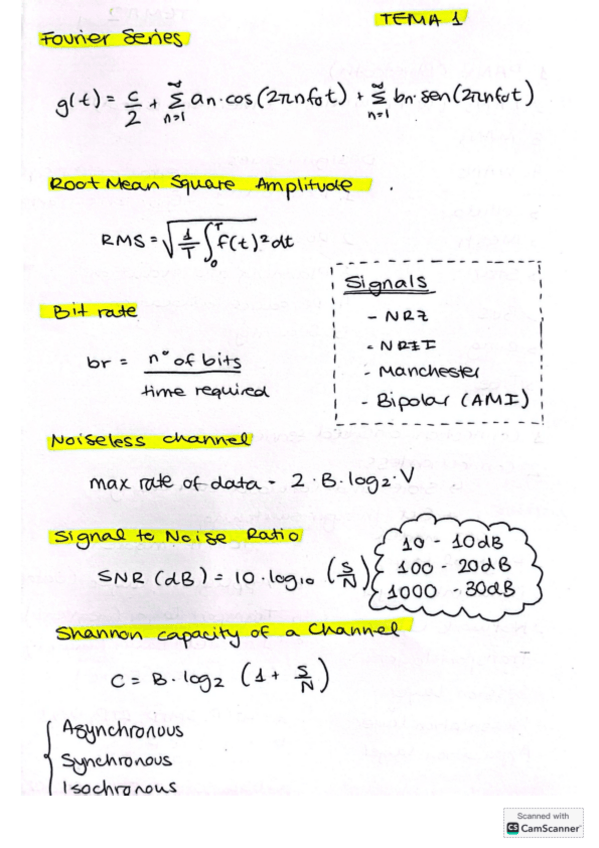 TEMA 1
Fourier Series
g(t) = c/2 + ∞Σn=1 an·cos(2πnf₀t) + ∞Σn=1 bn·sen(2πnf₀t)
Root Mean Square Amplitude .
RMS = √(1/T ∫₀ᵀ f(t)² dt)
Signals
- NRZ
- NRZI
- Manchester
- Bipolar (AMI)
Bit rate
br = nº of bits / time required
Noiseless channel
max rate of data = 2 · B · log₂ · V
Signal to Noise Ratio
SNR (dB) = 10 · log₁₀ (S/N)
10 - 10dB
100 - 20dB
1000 - 30dB
Shannon capacity of a Channel
C = B · log₂ (1 + S/N)
Asynchronous
Synchronous
Isochronous
Scanned with
CS CamScanner